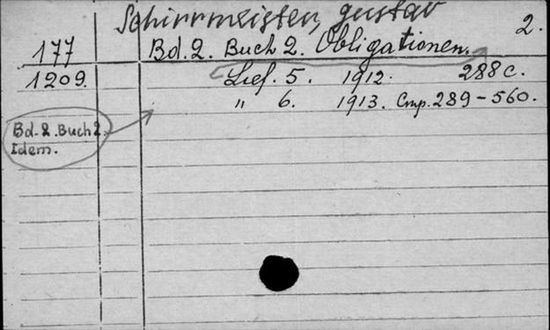 Schirrmeister, Gustav 2.
177 Bd. 2. Buch 2. Obligationen.
1209. Lief. 5. 1912. 288 c.
" 6. 1913. Стр. 289-560.
Bd. 2. Buch 2.
Idem.